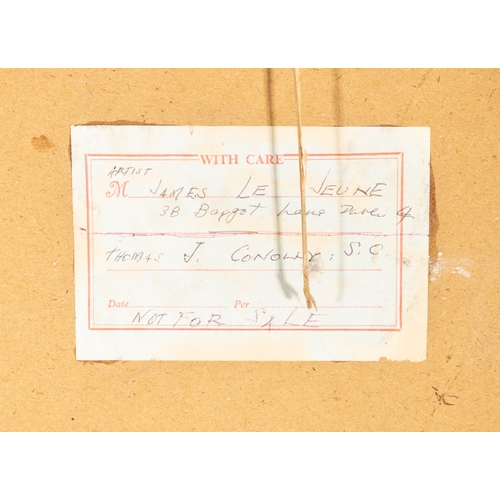 WITH CARE
ARTIST
M JAMES LE JEUNE
38 Baggot Lane Dublin 4
THOMAS J. CONOLLY, S.C.
Date Per
NOT FOR SALE